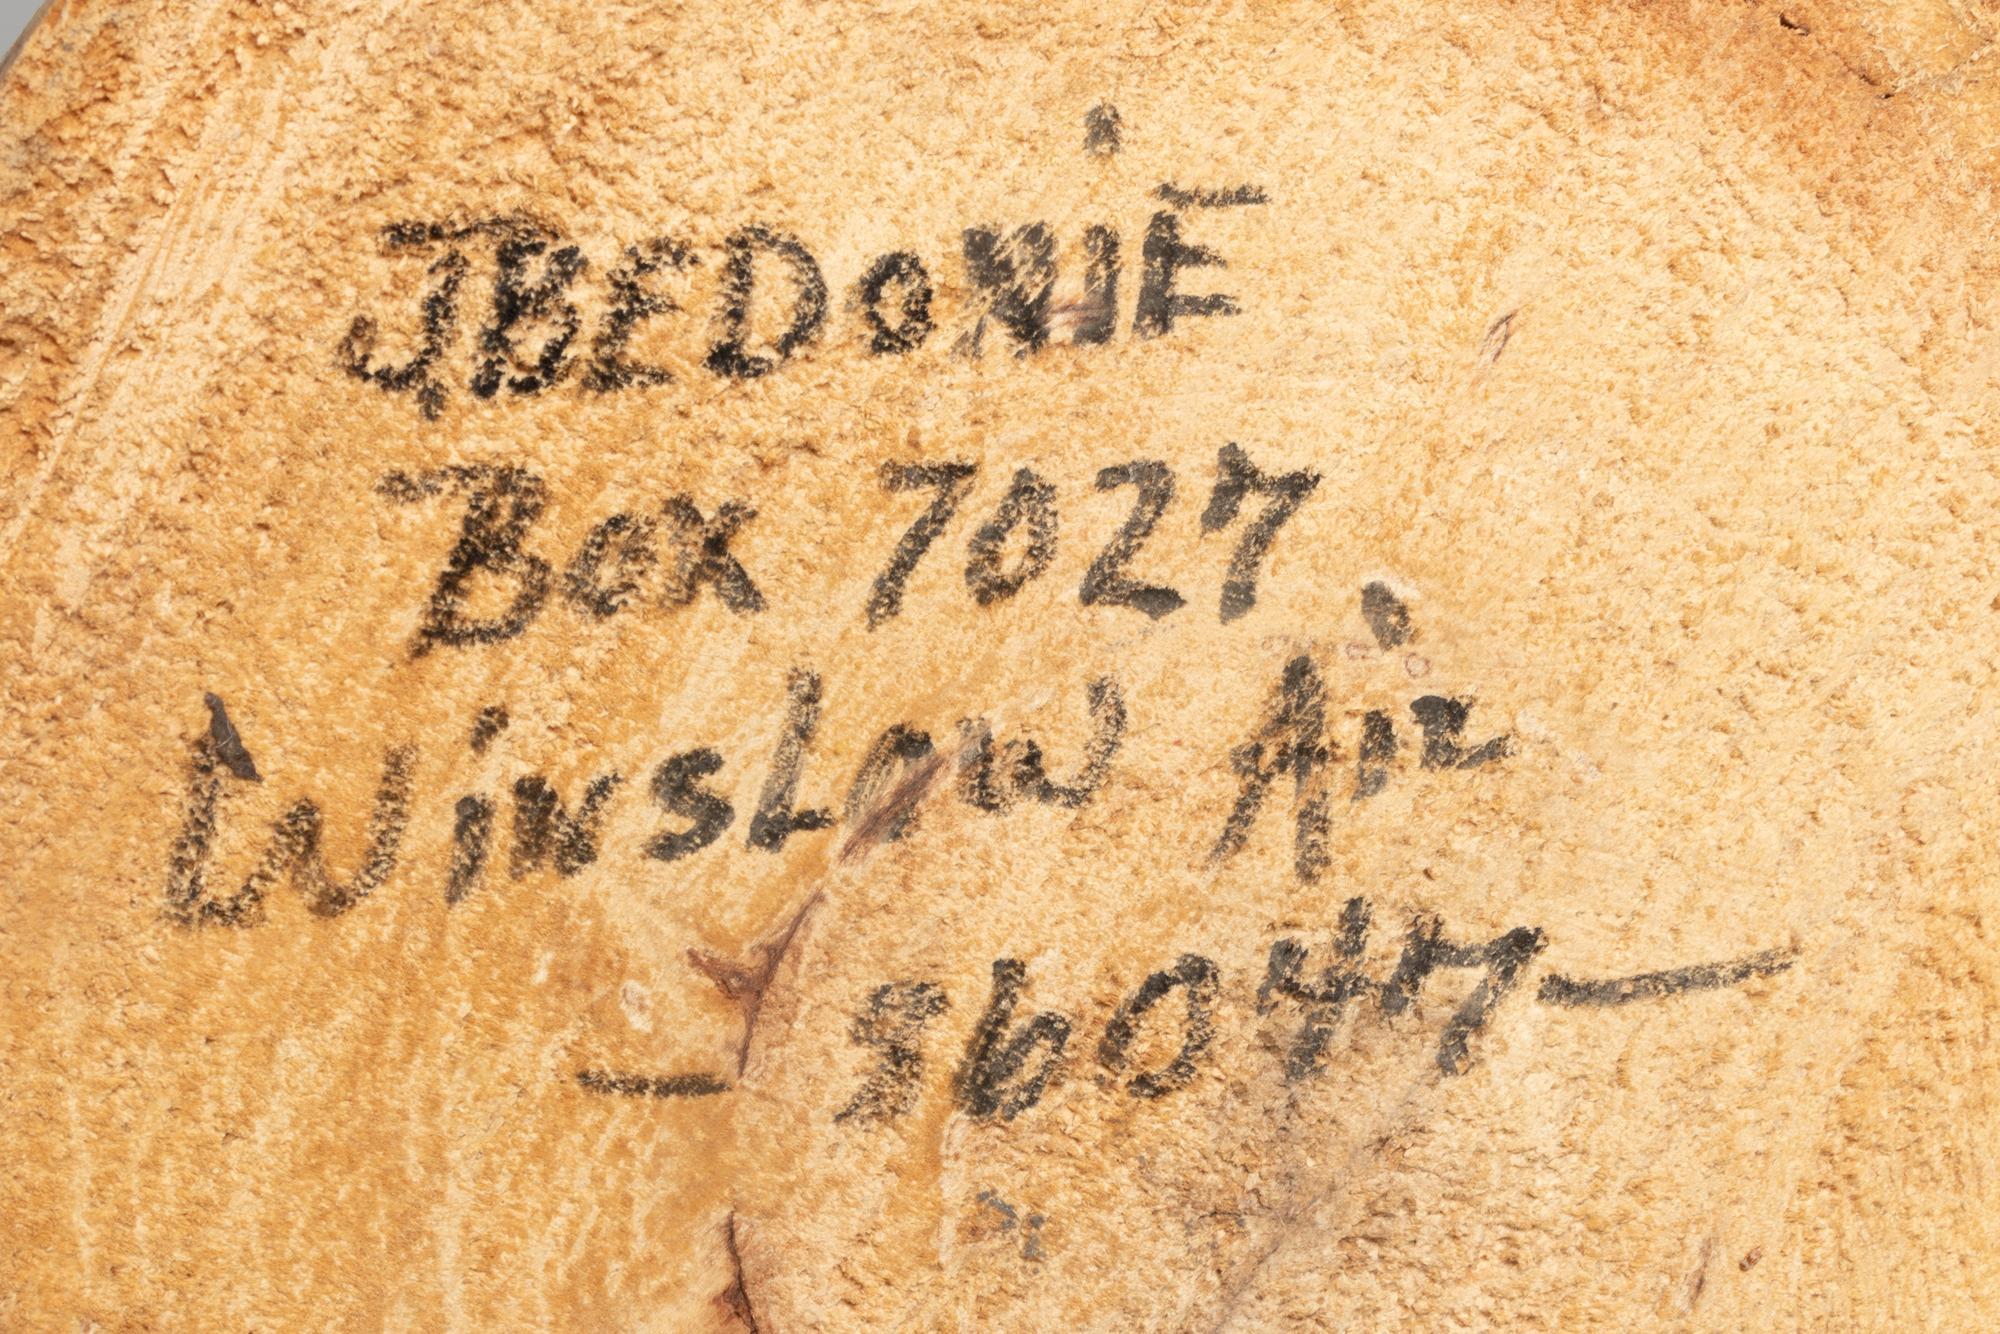 JBEDoNiE
Box 7027
WinsLow Aiz
— 86047 —